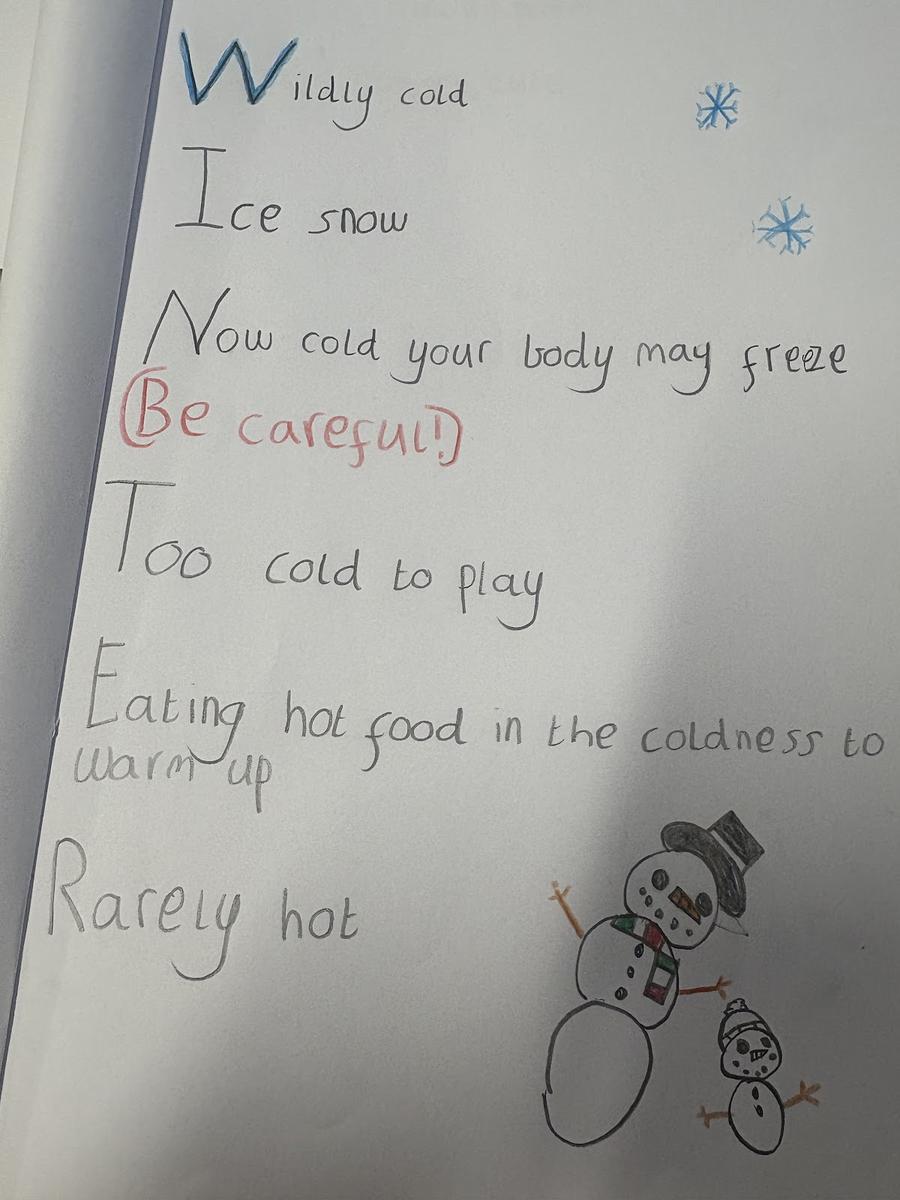 Wildly cold
Ice snow
Now cold your body may freeze
(Be careful!)
Too cold to play
Eating hot food in the coldness to
warm up
Rarely hot